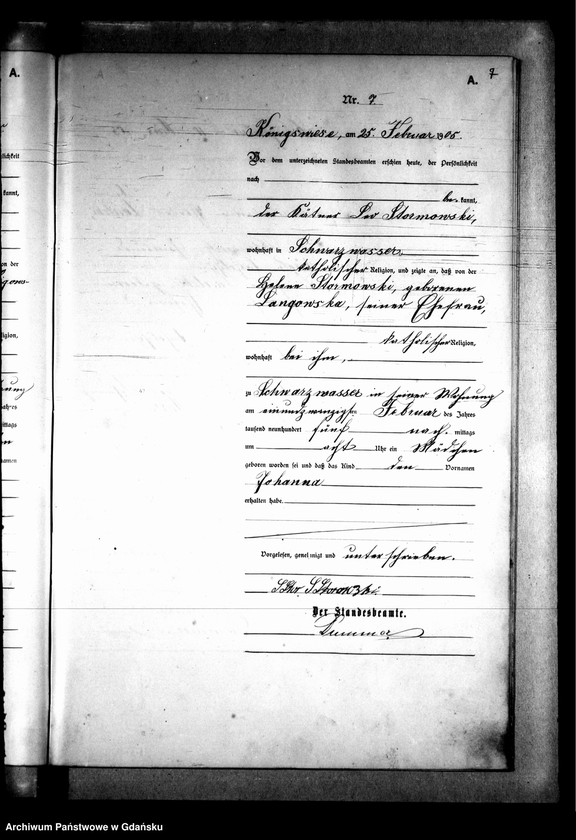 A.
A. 7
Nr. 7
Königswiese, am 25. Februar 1905.
Vor dem unterzeichneten Standesbeamten erschien heute, der Persönlichkeit
nach
be kannt,
der Kätner Leo Stormowski,
wohnhaft in Schwarzwasser
katholischer Religion, und zeigte an, daß von der
Helene Stormowski, geborenen
Langowska, seiner Ehefrau,
katholischer Religion,
wohnhaft bei ihm,
zu Schwarzwasser in seiner Wohnung
am einundzwanzigsten Februar des Jahres
tausend neunhundert fünf nach mittags
um acht Uhr ein Mädchen
geboren worden sei und daß das Kind den Vornamen
Johanna
erhalten habe.
Vorgelesen, genehmigt und unterschrieben.
Der Standesbeamte.
Archiwum Państwowe w Gdańsku